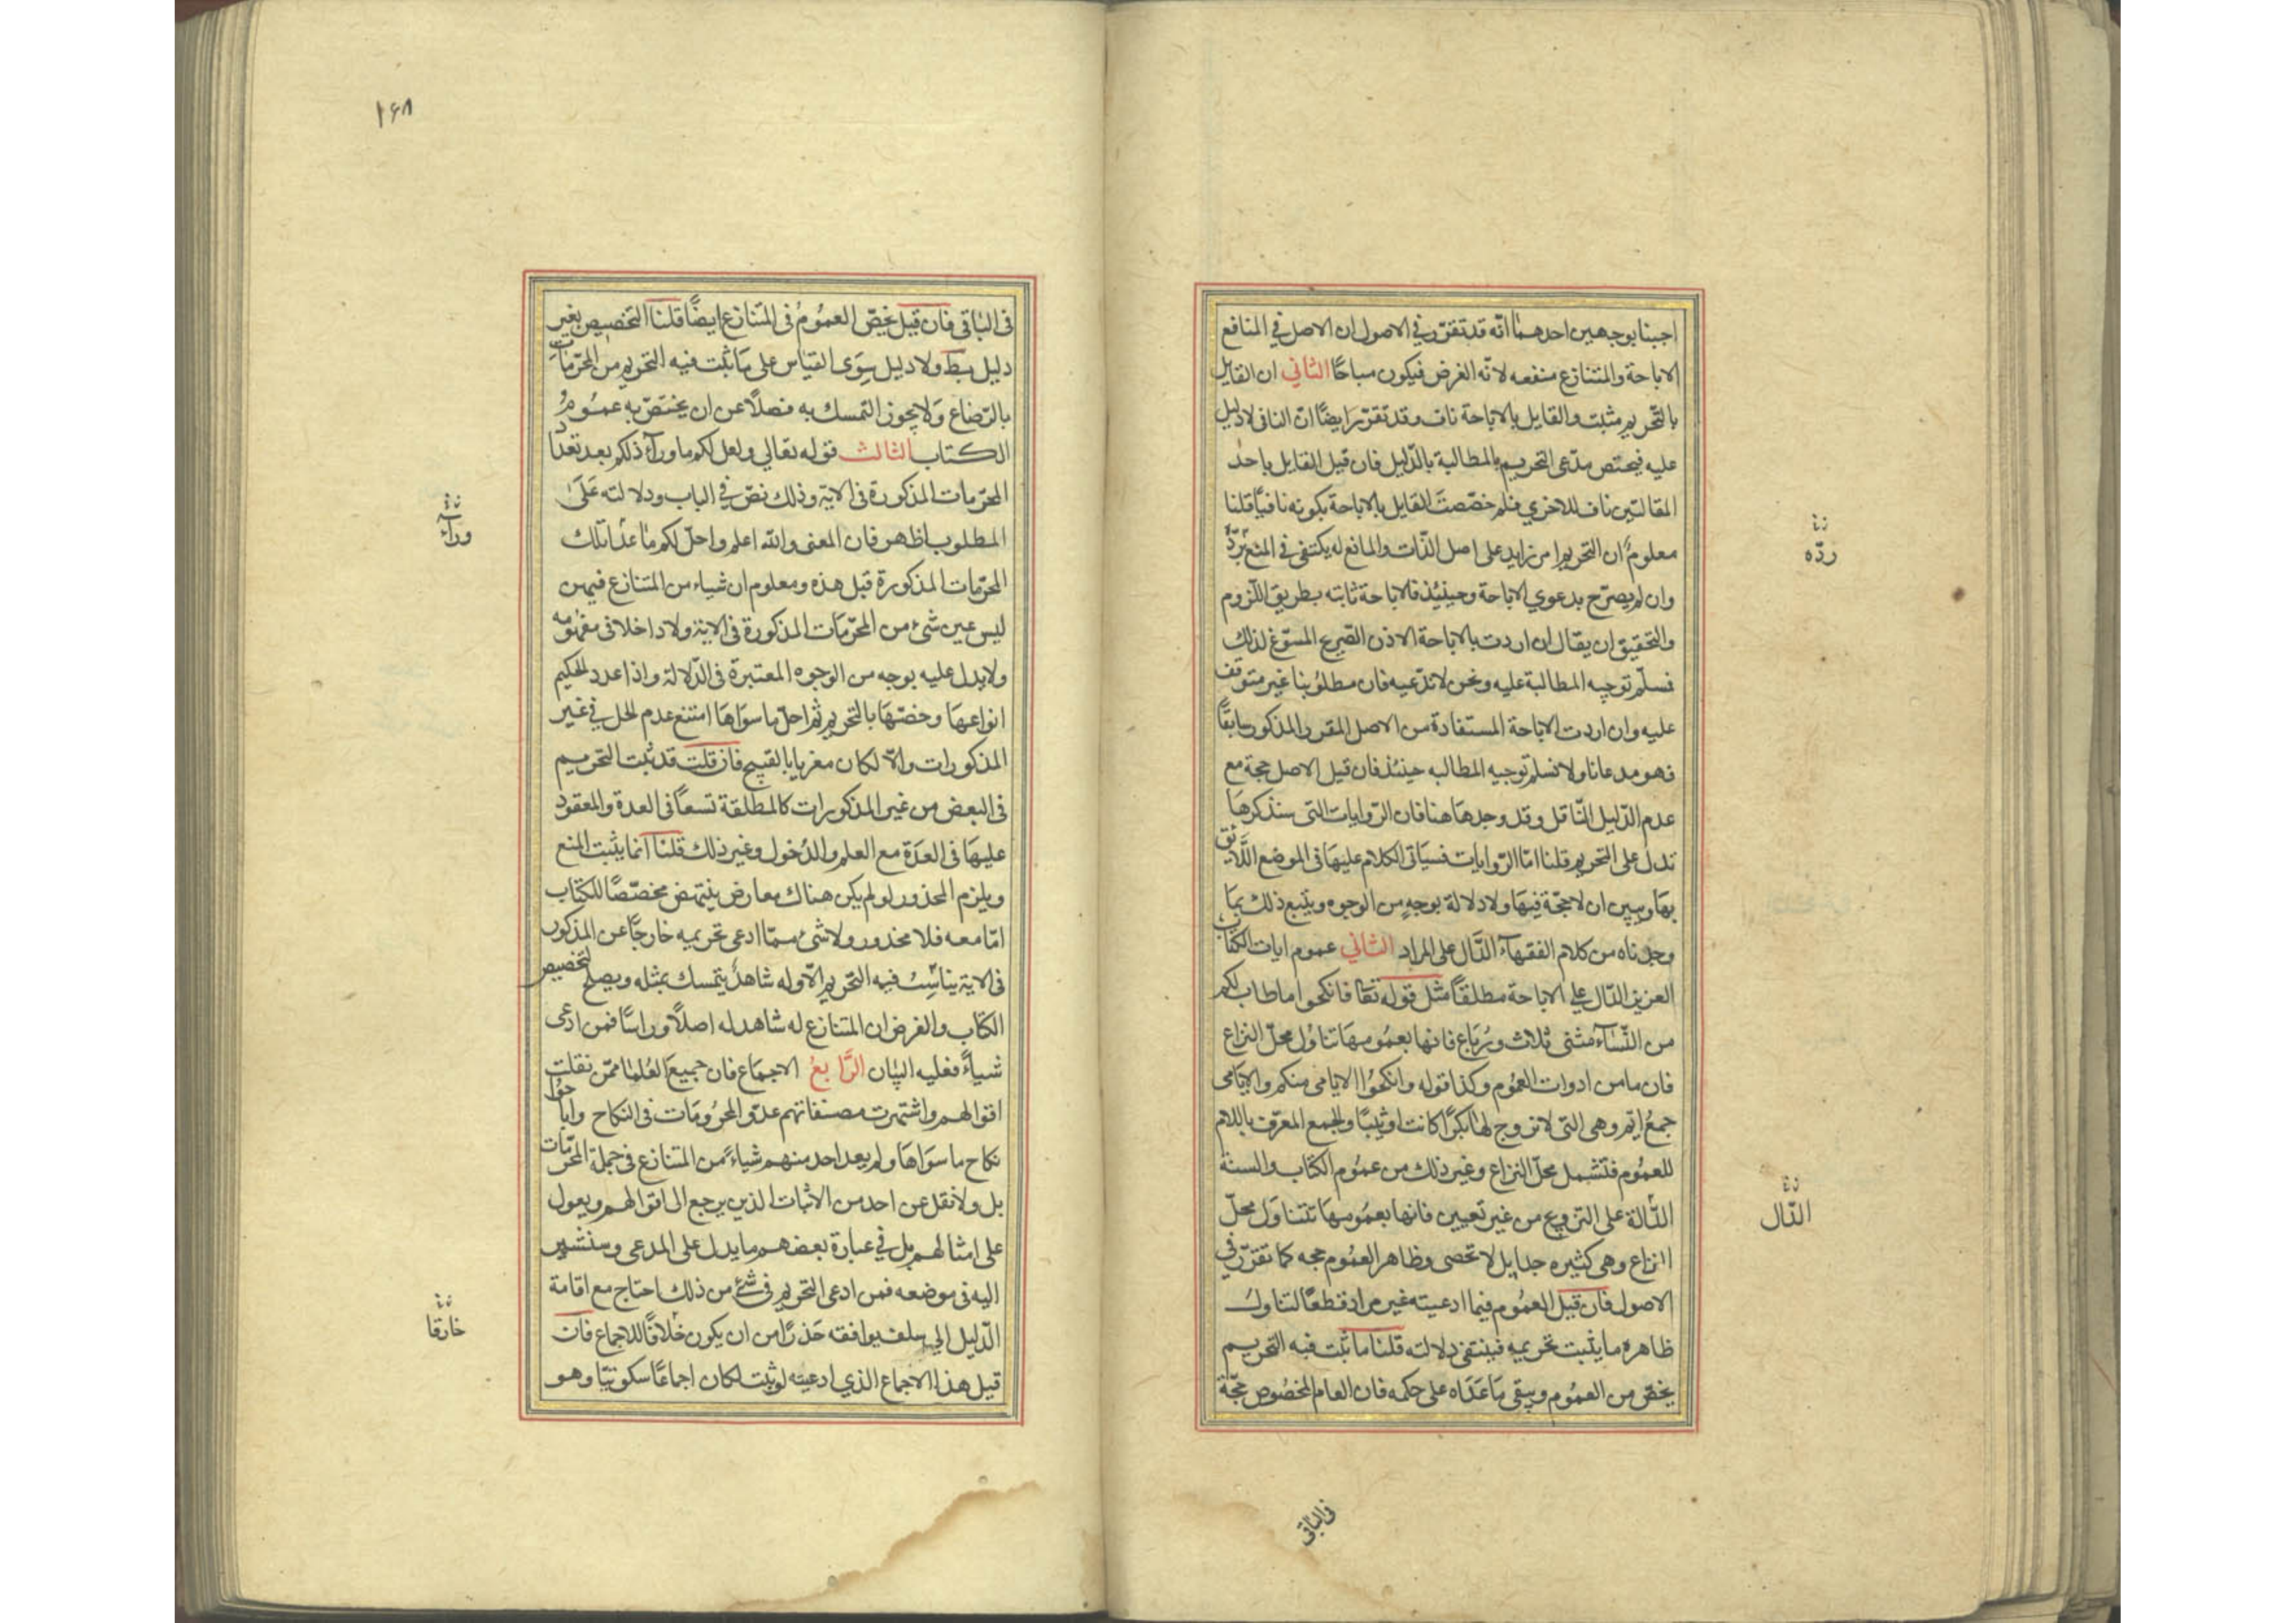 اجبنا بوجهين احدهما انه قد تقرر في الاصول ان الاصل في المنافع
الاباحة والمتنازع منفعه لانه الغرض فيكون مباحًا الثاني ان القايل
بالتحريم مثبت والقايل بالاباحة ناف وقد تقرر ايضًا ان النافي لا دليل
عليه فيختص مدعى التحريم بالمطالبة بالدليل فان قيل القايل باحد
المقالتين ناف للاخري فلم خصصت القايل بالاباحة بكونه نافيًا قلنا
معلوم ان التحريم امر زايد على اصل الذات والمانع له يكتفى في المنع بردّه
وان لم يصرح بدعوي الاباحة وحينئذ فالاباحة ثابته بطريق اللزوم
والتحقيق ان يقال ان اردت بالاباحة الاذن الصريح المسوغ لذلك
فسلم توجيه المطالبة عليه ونحن لا ندعيه فان مطلوبنا غير متوقف
عليه وان اردت الاباحة المستفادة من الاصل المقرر المذكور سابقًا
فهو مدعانا ولا نسلم توجيه المطالبه حينئذ فان قيل الاصل حجة مع
عدم الدليل الناقل وقد وجد هاهنا فان الروايات التى سنذكرها
تدل على التحريم قلنا امّا الروايات فسياتى الكلام عليها فى الموضع اللائق
بها ويبين ان لا حجة فيها ولا دلالة بوجهٍ من الوجوه ويتبع ذلك بما
وجدناه من كلام الفقهاء الدال على المراد الثاني عموم ايات الكتاب
العزيز الدال علي الاباحة مطلقًا مثل قوله تعا فانكحوا ما طاب لكم
من النساء مثنى وثلاث ورباع فانها بعمومها تناول محل النزاع
فان ما من ادوات العموم وكذا قوله وانكحوا الايامى منكم والايامى
جمع ايّم وهى التى لا زوج لها بكرًا كانت او ثيبًا والجمع المعرّف باللام
للعموم فتشمل محل النزاع وغير ذلك من عموم الكتاب والسنة
الدالة على التزويج من غير تعيين فانها بعمومها تتناول محلّ
النزاع وهى كثيره جدا بل لا تحصى وظاهر العموم حجه كما تقرّر في
الاصول فان قيل العموم فيما ادعيته غير مراد قطعًا لتناول
ظاهره ما يثبت تحريمه فينتفى دلالته قلنا ما ثبت فيه التحريم
يخصّ من العموم ويبقى ما عداه على حكمه فان العام المخصوص حجّة
ردّه
الدّال
فى الباقى
١٦٨
فى الباقى فان قيل يخصّ العموم فى المتنازع ايضًا قلنا التخصيص بغير
دليل بط ولا دليل سوى القياس على ما ثبت فيه التحريم من المحرّمات
بالرّضاع ولا يجوز التمسك به فضلًا عن ان يختصّ به عموم
الكتاب الثالث قوله تعالي واحل لكم ما وراء ذلكم بعد تعداد
المحرّمات المذكورة فى الاية وذلك نصّ في الباب ودلالته على
المطلوب اظهر فان المعنى والله اعلم واحلّ لكم ما عدا تلك
المحرّمات المذكورة قبل هذه ومعلوم ان شياء من المتنازع فيهن
ليس عين شىء من المحرّمات المذكورة فى الاية ولا داخلا فى مفهومه
ولا يدل عليه بوجه من الوجوه المعتبرة فى الدّلالة واذا عدد الحكيم
انواعها وخصّها بالتحريم ثم احلّ ما سواها امتنع عدم الحل في غير
المذكورات والّا لكان مغريا بالقبيح فان قلت قد ثبت التحريم
فى البعض من غير المذكورات كالمطلقة تسعًا فى العدة والمعقود
عليها فى العدّة مع العلم والدّخول وغير ذلك قلنا انما يثبت المنع
ويلزم المحذور لو لم يكن هناك معارض ينتهض مخصّصًا للكتاب
امّا معه فلا محذور ولا شىء ممّا ادعى تحريمه خارجًا عن المذكور
فى الاية يناسب فيه التحريم الّا وله شاهدٌ يتمسك بمثله ويصلح لتخصيص
الكتاب والغرض ان المتنازع لا شاهد له اصلًا وراسًا فمن ادعى
شياءً فعليه البيان الرّابعُ الاجماع فان جميع العلما ممّن نقلت
اقوالهم واشتهرت مصنفاتهم عدّوا المحرّمات فى النكاح واباحوا
نكاح ما سواها ولم يعد احد منهم شياءً من المتنازع فى جملة المحرّمات
بل ولا نقل عن احد من الاثبات الذين يرجع الى اقوالهم ويعول
على امثالهم بل في عبارة بعضهم ما يدل على المدعى وسنشير
اليه فى موضعه فمن ادعى التحريم فى شئ من ذلك احتاج مع اقامة
الدّليل الي سلف يوافقه حذرًا من ان يكون خلافًا للاجماع فان
قيل هذا الاجماع الذي ادعيته لو ثبت لكان اجماعًا سكوتيّا وهو
وراء
خارقا